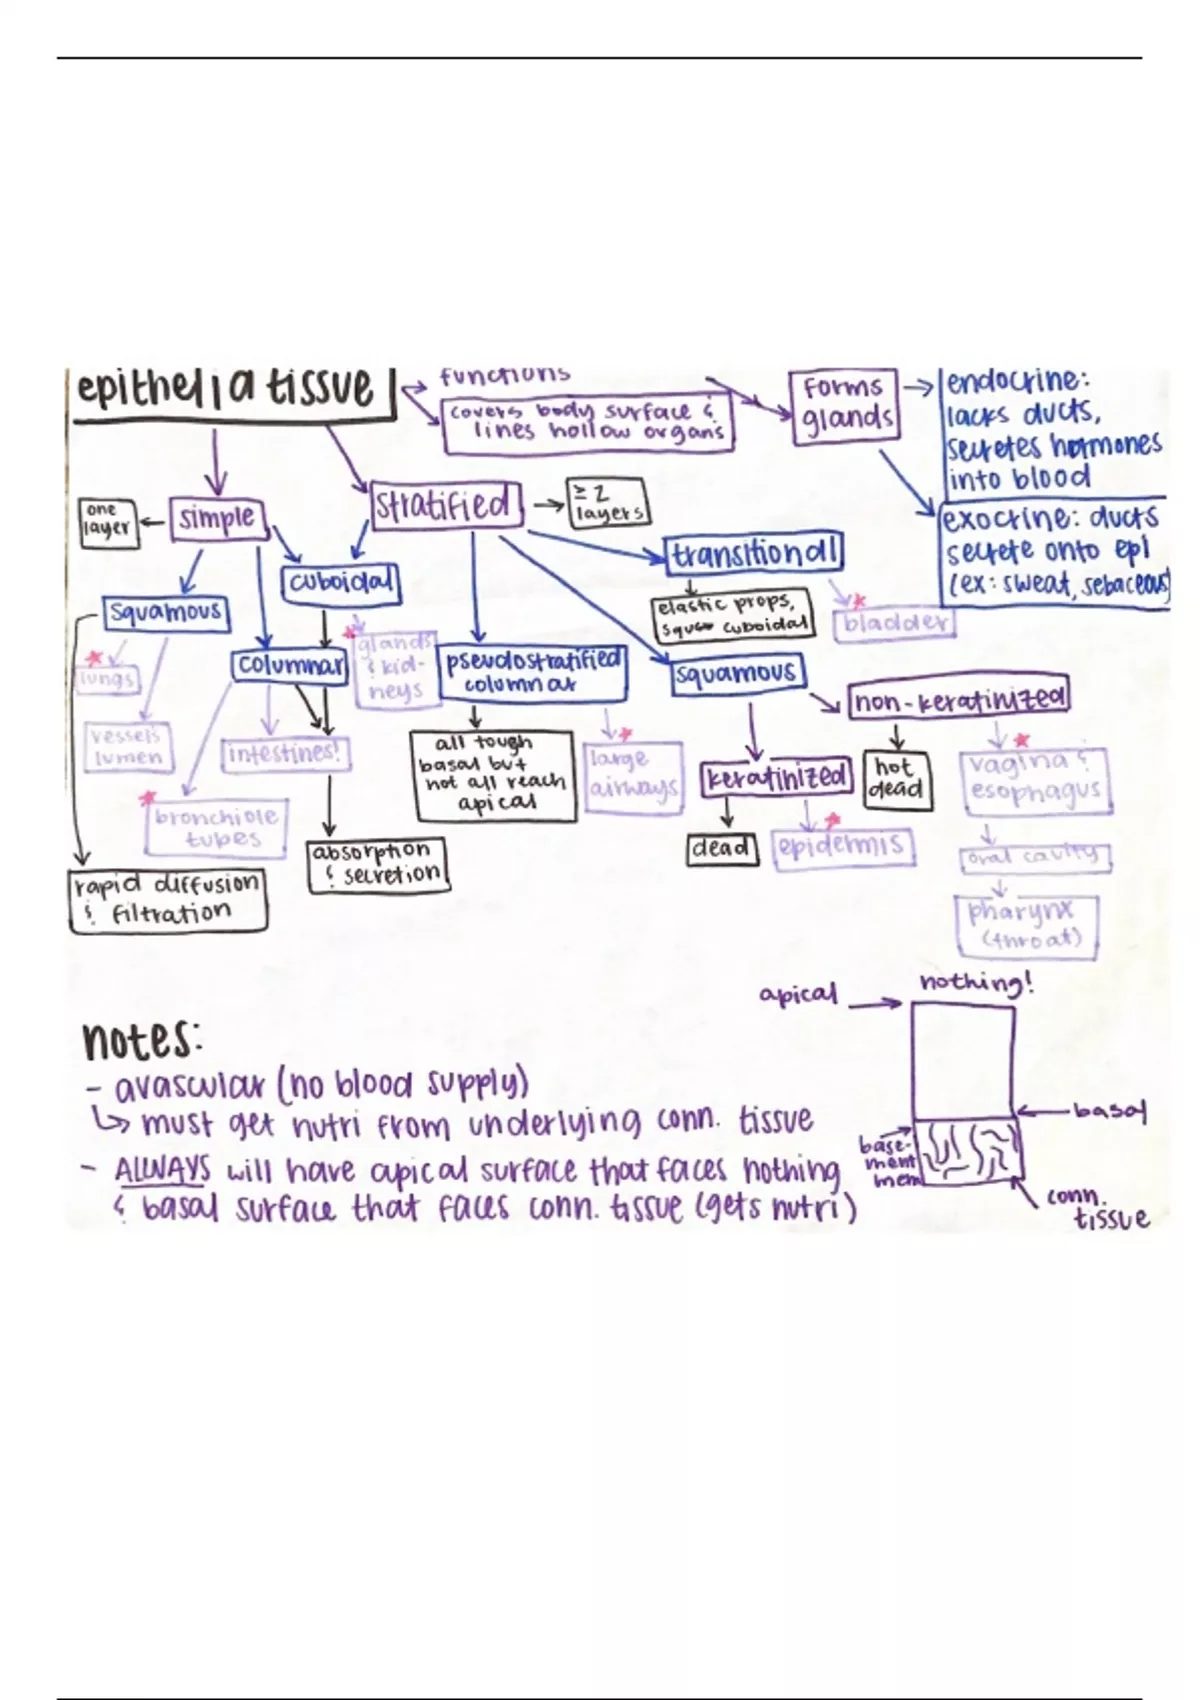 epithelia tissue
functions
covers body surface &
lines hollow organs
forms
glands
endocrine:
lacks ducts,
secretes hormones
into blood
exocrine: ducts
secrete onto epi
(ex: sweat, sebaceous)
one
layer
simple
stratified
≥ 2
layers
cuboidal
transitional
squamous
elastic props,
cuboidal
bladder
lungs
columnar
glands
& kid-
neys
pseudostratified
columnar
squamous
non-keratinized
vessels
lumen
intestines!
all tough
basal but
not all reach
apical
large
airways
keratinized
hot
dead
vagina &
esophagus
bronchiole
tubes
absorption
& secretion
dead
epidermis
oral cavity
rapid diffusion
& filtration
pharynx
(throat)
nothing!
apical
notes:
- avascular (no blood supply)
↳ must get nutri from underlying conn. tissue
- ALWAYS will have apical surface that faces nothing
& basal surface that faces conn. tissue (gets nutri)
basal
base-
ment
mem
conn.
tissue